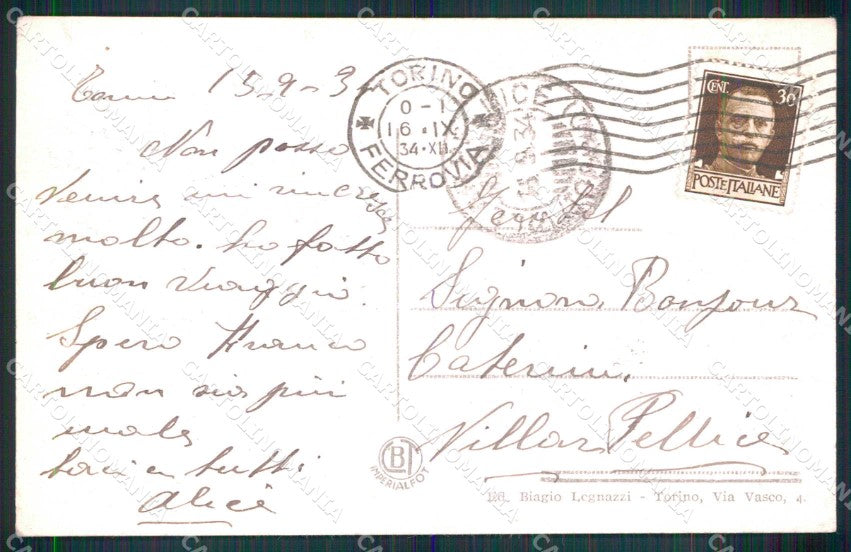 Torino 15-9-34
Non posso
venire mi rincresce
molto. ho fatto
buon viaggio.
Spero Franco
non sia più
male
baci a tutti
Alice
TORINO
FERROVIA
0-1
16·IX
34·XII
CENT. 30
POSTE ITALIANE
Signora Bonjour
Caterina
Villar Pellice
B
IMPERIALFOT
Ed. Biagio Legnazzi - Torino, Via Vasco, 4.
CARTOLINOMANIA